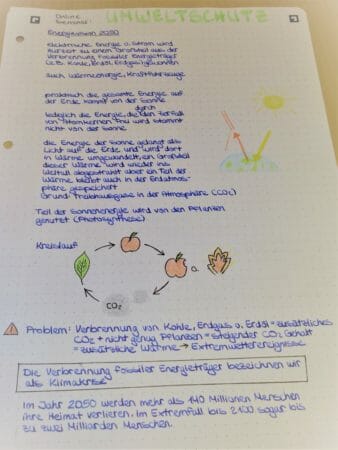 Online
Seminar:
UMWELTSCHUTZ
Energievision 2050
elektrische Energie o. Strom wird
zurzeit zu einem Großteil aus der
Verbrennung fossiler Energieträger
(z.B. Kohle, Erdöl, Erdgas) gewonnen
auch Wärmeenergie, Kraftfahrzeuge
praktisch die gesamte Energie auf
der Erde kommt von der Sonne
durch
lediglich die Energie, die den Zerfall
von Atomkernen frei wird stammt
nicht von der Sonne
die Energie der Sonne gelangt als
Licht auf die Erde und wird dort
in Wärme umgewandelt, ein Großteil
dieser Wärme wird wieder ins
Weltall abgestrahlt aber ein Teil der
Wärme bleibt auch in der Erdatmos-
phäre gespeichert
Grund: Treibhausgase in der Atmosphäre (CO₂)
Teil der Sonnenenergie wird von den Pflanzen
genutzt (Photosynthese)
Kreislauf
o.
CO₂
Problem: Verbrennung von Kohle, Erdgas o. Erdöl = zusätzliches
CO₂ + nicht genug Pflanzen = steigender CO₂ Gehalt
= zusätzliche Wärme → Extremwetterereignisse
Die Verbrennung fossiler Energieträger bezeichnen wir
als Klimakrise
Im Jahr 2050 werden mehr als 140 Millionen Menschen
ihre Heimat verlieren. Im Extremfall bis 2100 sogar bis
zu zwei Milliarden Menschen.